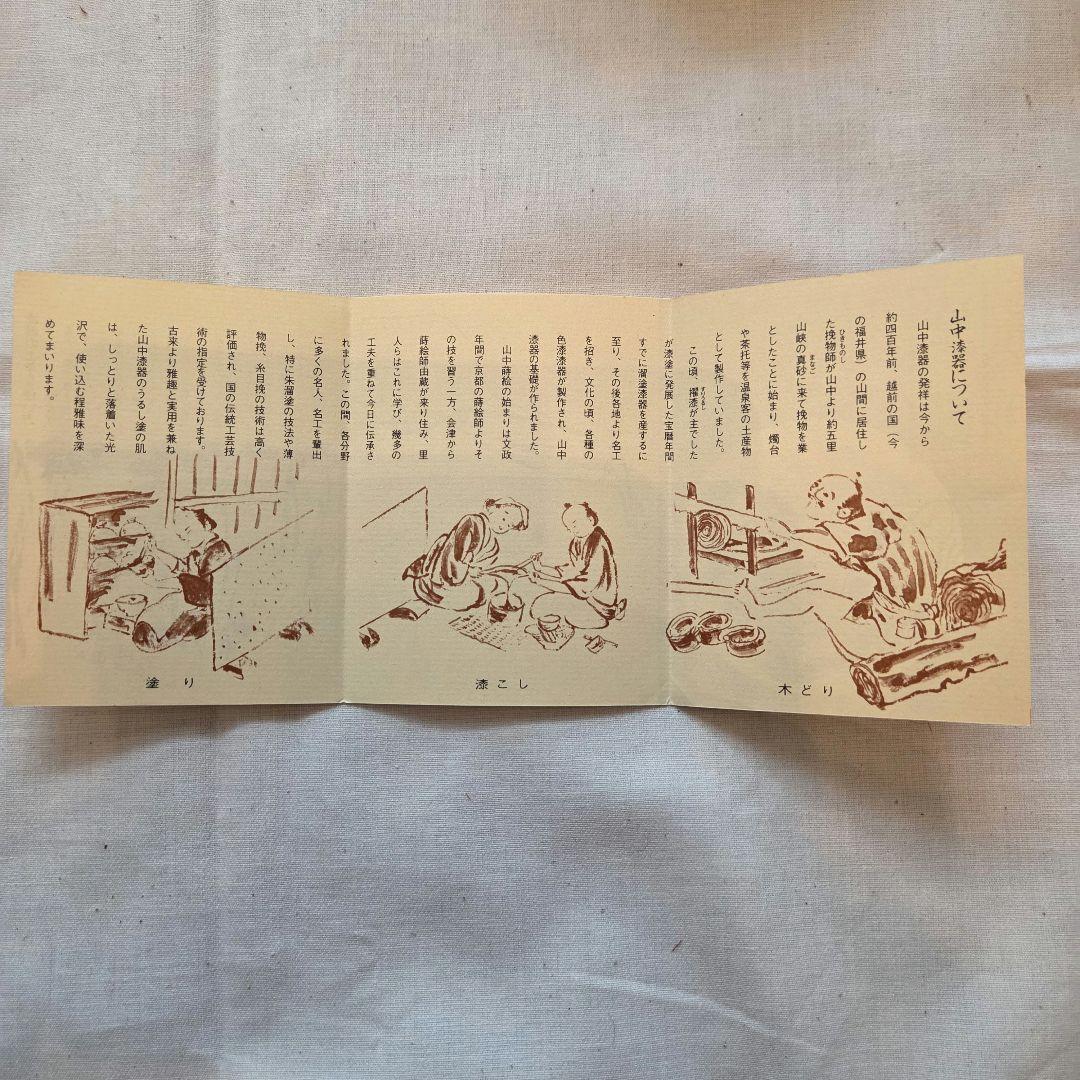 山中漆器について
山中漆器の発祥は今から
約四百年前、越前の国（今
の福井県）の山間に居住し
た挽物師が山中より約五里
ひきものし
山峡の真砂に来て挽物を業
まなご
としたことに始まり、燭台
や茶托等を温泉客の土産物
として製作していました。
この頃、擢漆が主でした
すりうるし
が漆塗に発展した宝暦年間
すでに溜塗漆器を産するに
至り、その後各地より名工
を招き、文化の頃、各種の
色漆漆器が製作され、山中
漆器の基礎が作られました。
山中蒔絵の始まりは文政
年間で京都の蒔絵師よりそ
の技を習う一方、会津から
蒔絵師由蔵が来り住み、里
人らはこれに学び、幾多の
工夫を重ねて今日に伝承さ
れました。この間、各分野
に多くの名人、名工を輩出
し、特に朱溜塗の技法や薄
物挽、糸目挽の技術は高く
評価され、国の伝統工芸技
術の指定を受けております。
古来より雅趣と実用を兼ね
た山中漆器のうるし塗の肌
は、しっとりと落着いた光
沢で、使い込む程雅味を深
めてまいります。
木どり
漆こし
塗り